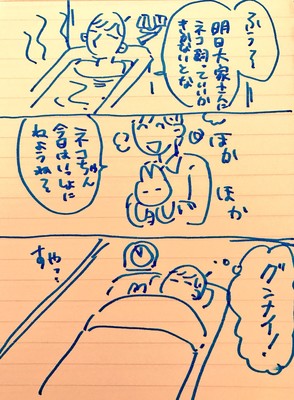 ふぅ〜〜
明日大家さんに
ネコ飼っていいか
きかないとな
ほか
ほか
ネコちゃん
今日はいっしょに
ねようね〜
グンナイ!
すや…